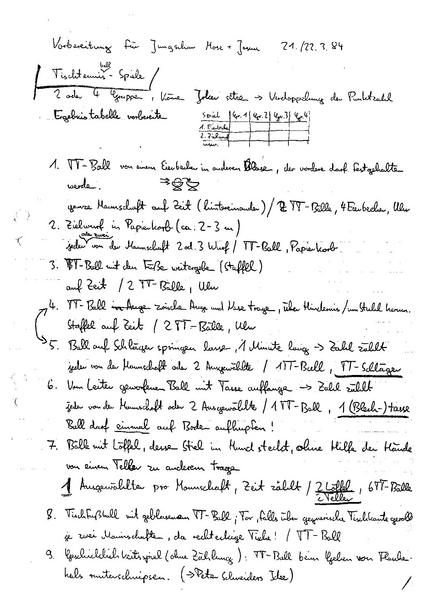 Vorbereitung für Jungschar Mose + Jesus 21./22.3.84
Tischtennisball-Spiele
2 oder 4 Gruppen, können Joker setzen → Verdoppelung der Punktzahl
Ergebnistabelle vorbereiten
Spiel Gr.1 Gr.2 Gr.3 Gr.4
1. Eierbecher
2. Zielwurf
usw.
1. TT-Ball von einem Eierbecher in anderen blasen, der vordere darf festgehalten
werden.
ganze Mannschaft auf Zeit (hintereinander) / 2 TT-Bälle, 4 Eierbecher, Uhr
2. Zielwurf in Papierkorb (ca. 2-3 m)
jeder oder zwei von der Mannschaft 2 od. 3 Wurf / TT-Ball, Papierkorb
3. TT-Ball mit den Füßen weitergeben (Staffel)
auf Zeit / 2 TT-Bälle, Uhr
4. TT-Ball zwischen Auge und Nase tragen, über Hindernis / um Stuhl herum.
Staffel auf Zeit / 2 TT-Bälle, Uhr
5. Ball auf Schläger springen lassen, 1 Minute lang → Zahl zählt
jeder von der Mannschaft oder 2 Ausgewählte / 1 TT-Ball, TT-Schläger
6. Von Leiter geworfenen Ball mit Tasse auffangen → Zahl zählt
jeder von der Mannschaft oder 2 Ausgewählte / 1 TT-Ball, 1 (Blech-)tasse
Ball darf einmal auf Boden aufhüpfen!
7. Bälle mit Löffel, dessen Stiel im Mund steckt, ohne Hilfe der Hände
von einem Teller zu anderem tragen
1 Ausgewählter pro Mannschaft, Zeit zählt / 2 Löffel, 6 TT-Bälle
2 Teller
8. Tischfußball mit geblasenem TT-Ball; Tor, falls über gegnerische Tischkante gerollt
je zwei Mannschaften, da rechteckige Tische! / TT-Ball
9. Geschicklichkeitsspiel (ohne Zählung): TT-Ball beim Gehen von Flaschen-
hals runterschnipsen. (→ Peter Schneiders Idee)